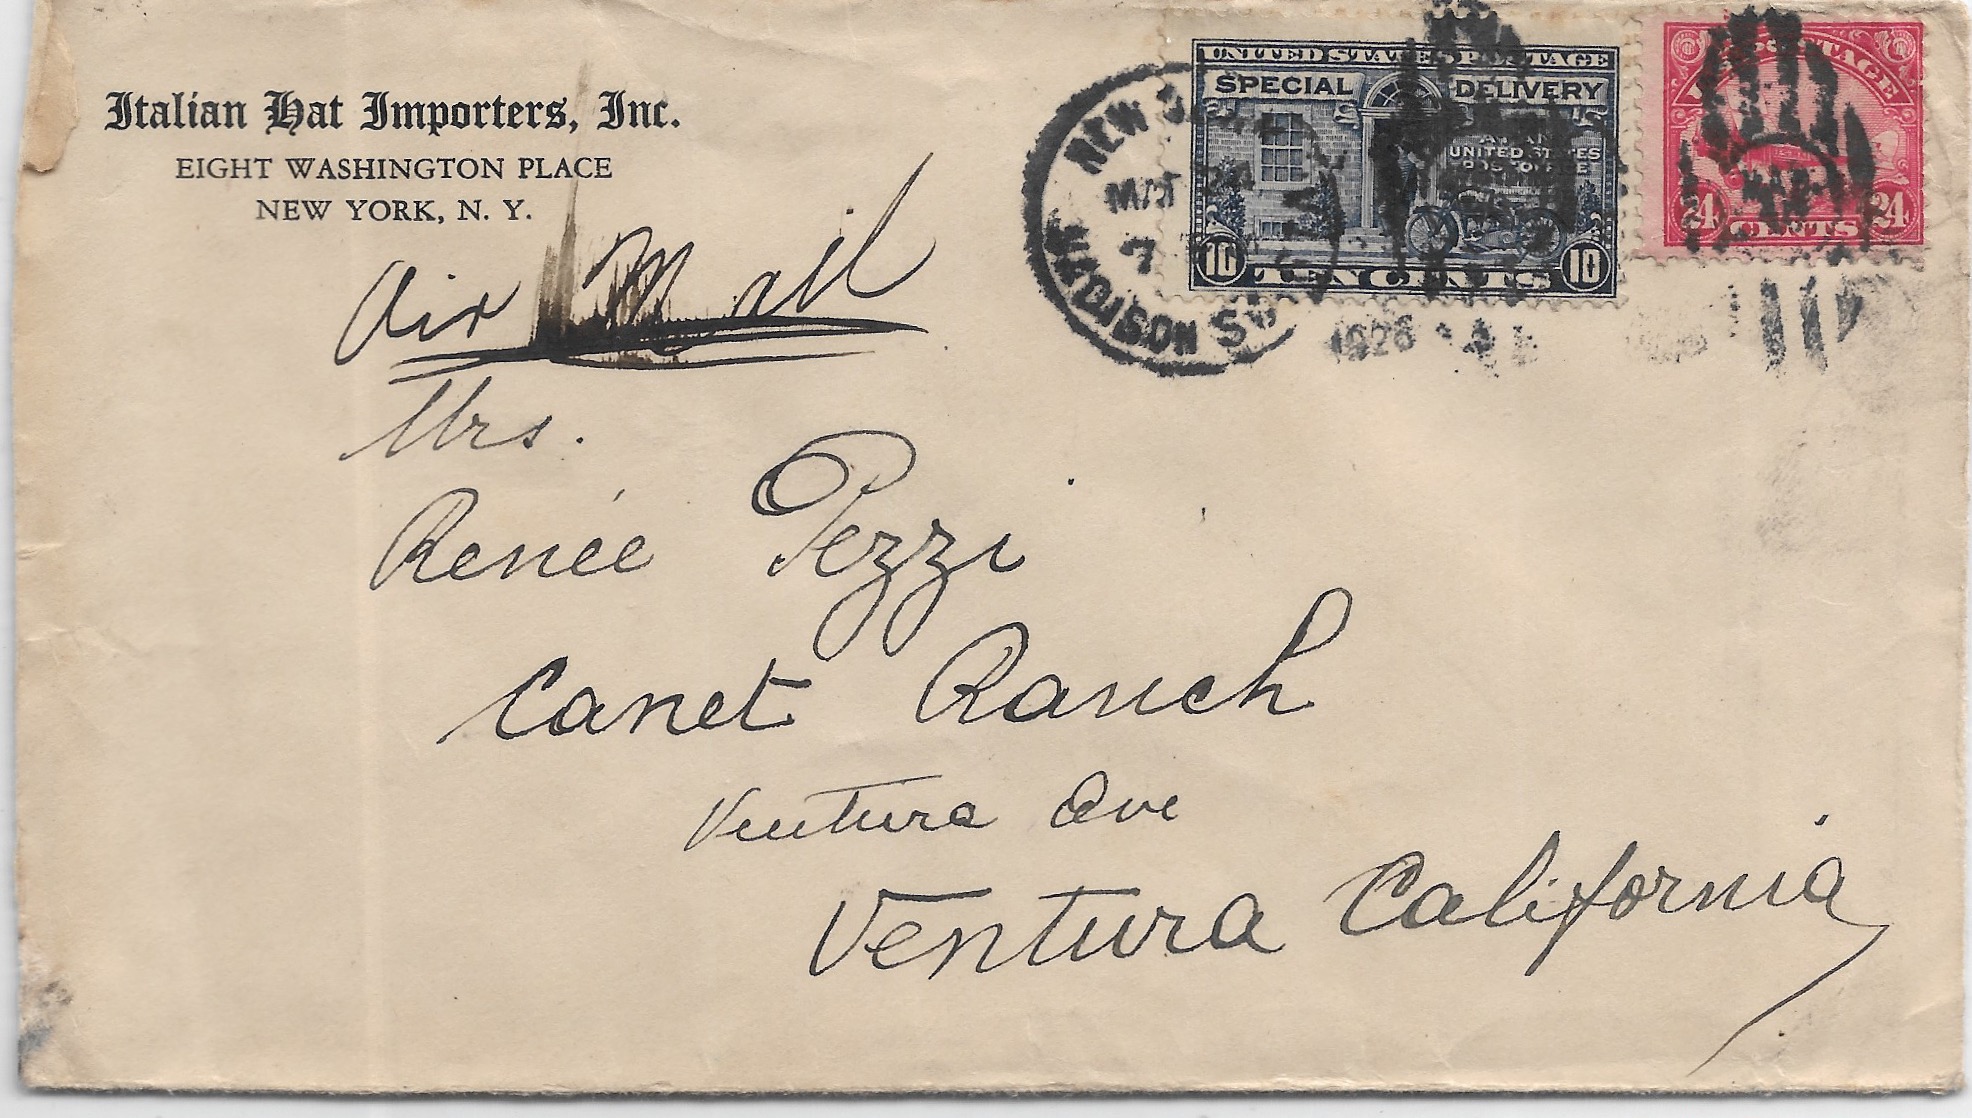 Italian Hat Importers, Inc.
EIGHT WASHINGTON PLACE
NEW YORK, N. Y.
UNITED STATES POSTAGE
SPECIAL DELIVERY
AT ANY
UNITED STATES
POST OFFICE
10 TEN CENTS 10
POSTAGE
24 CENTS 24
NEW
MADISON SQ.
7
1926
Air Mail
Mrs.
Renée Pezzi
Canet Ranch
Ventura Ave
Ventura California